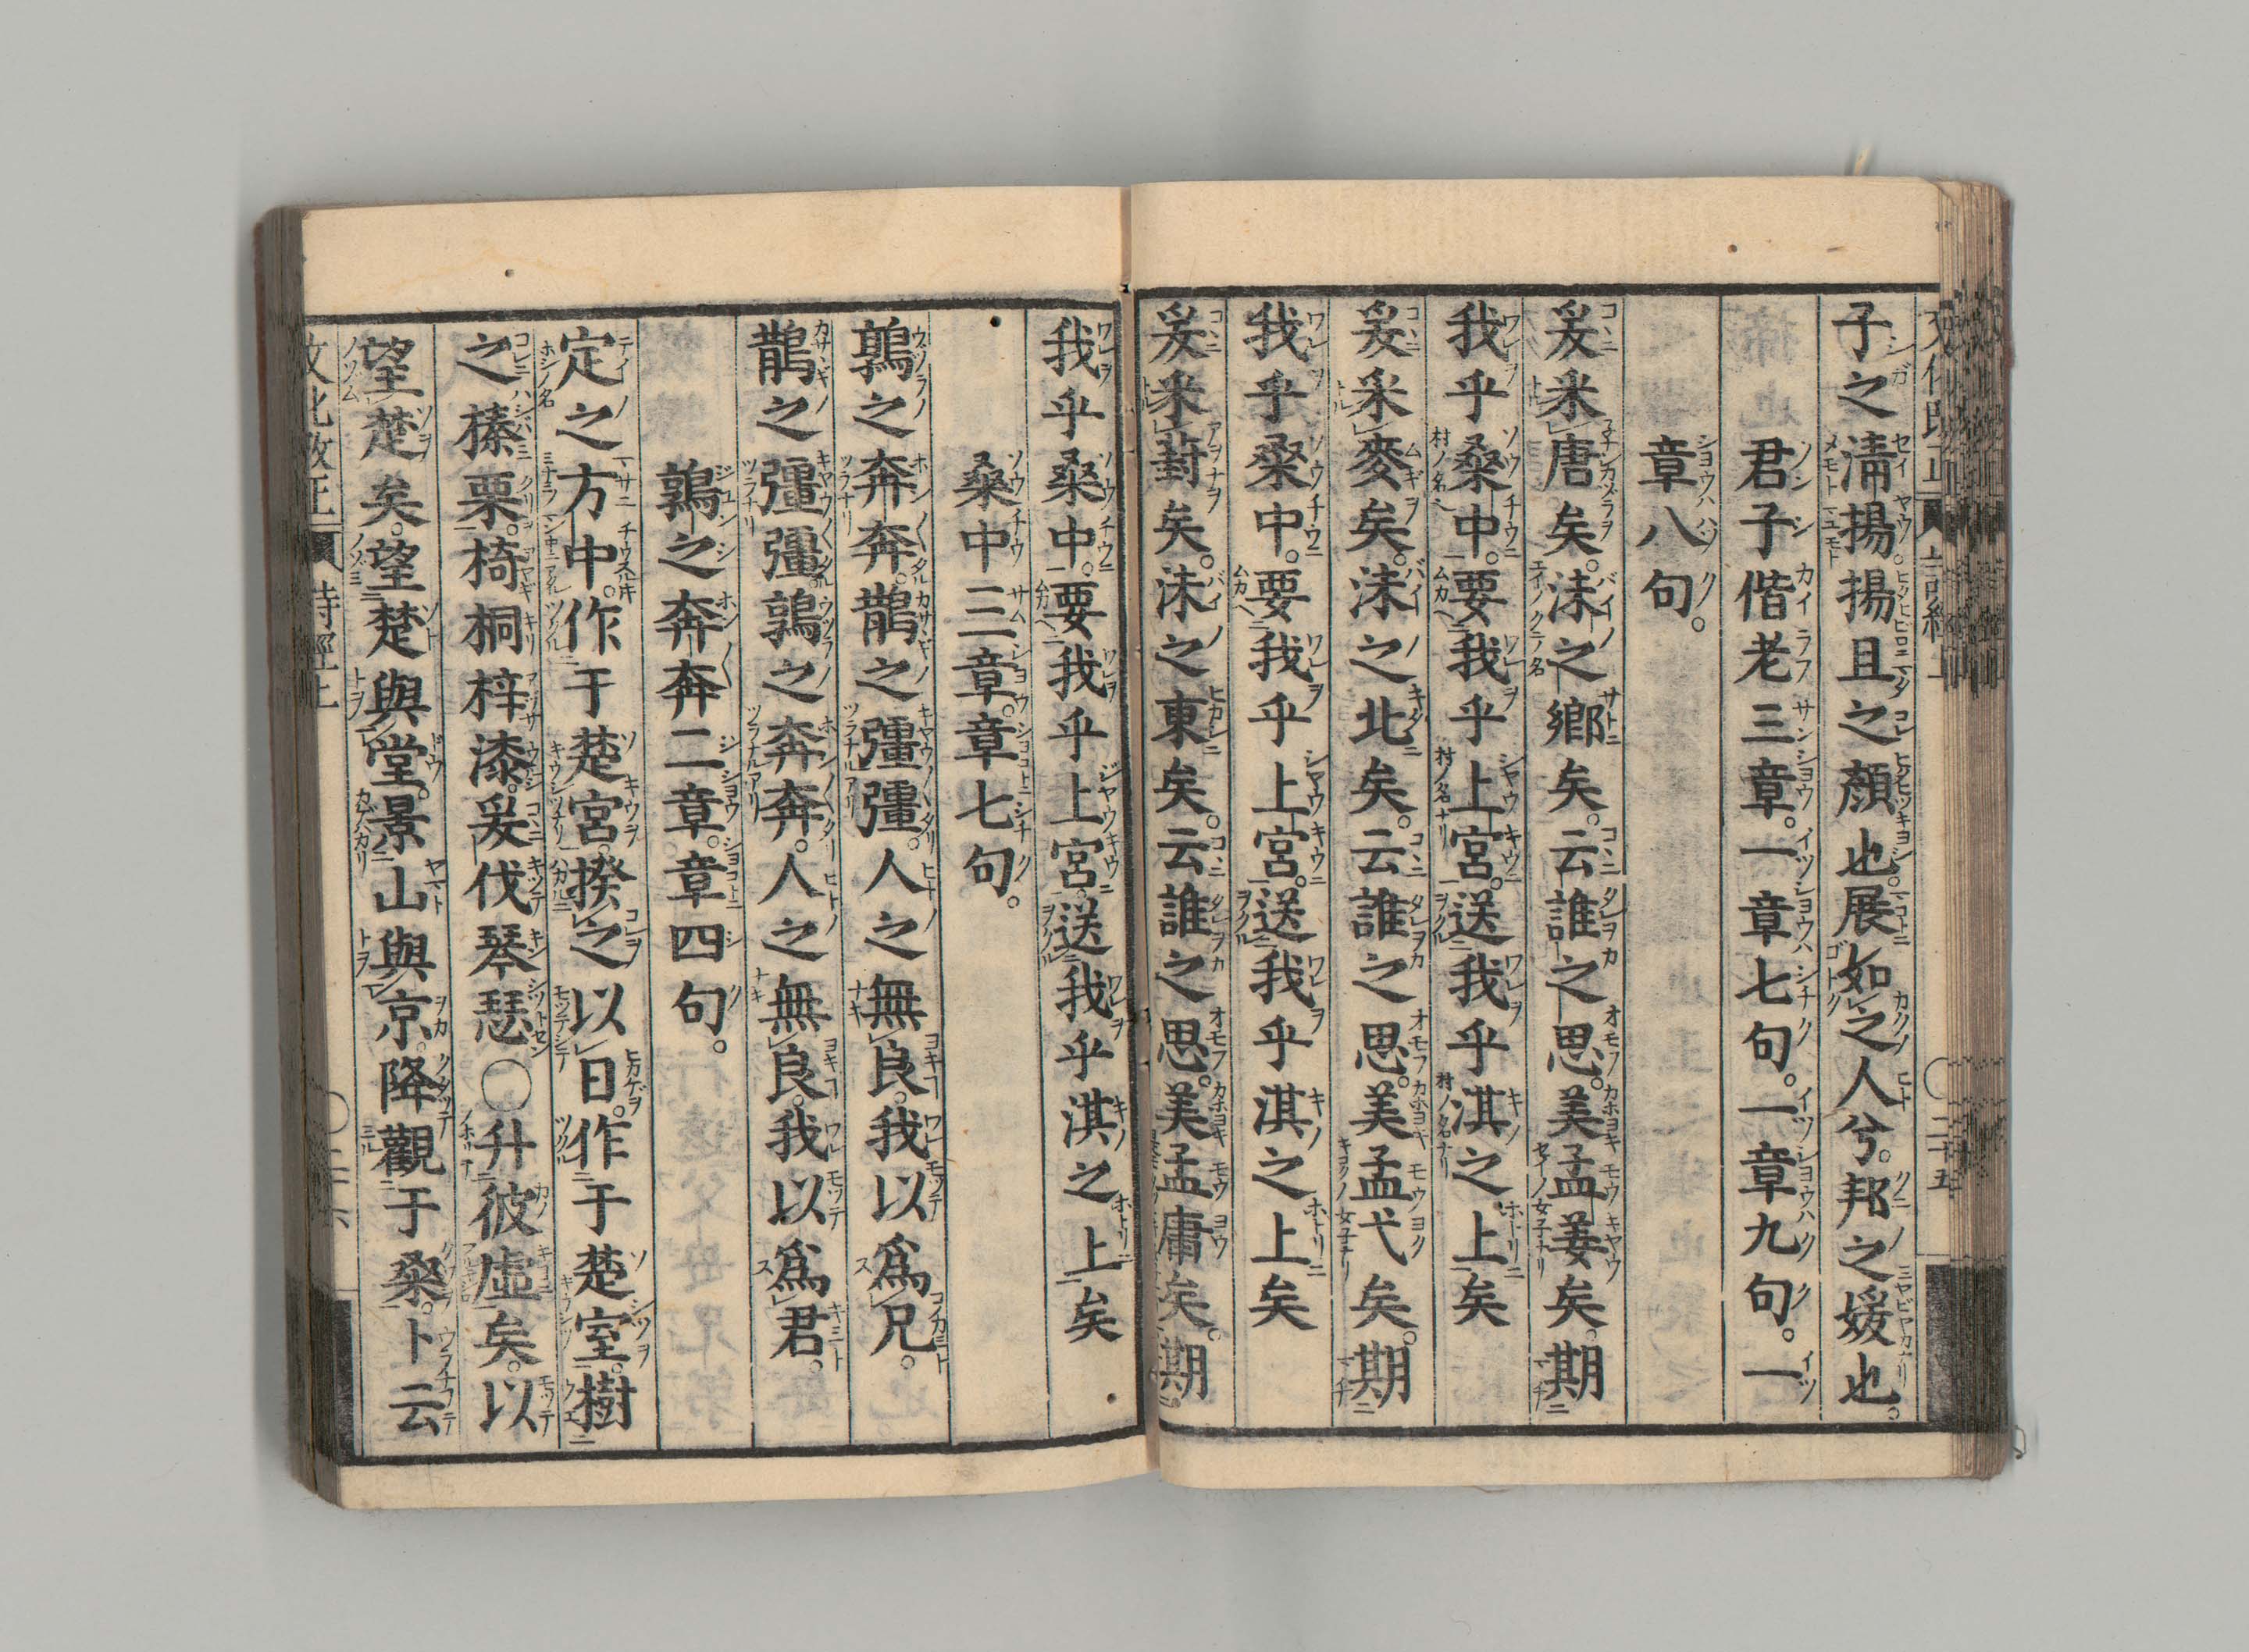 子之淸揚。揚且之顏也。展如之人兮。邦之媛也。
君子偕老三章。一章七句。一章九句。一
章八句。
爰釆唐矣。沬之鄉矣。云誰之思。美孟姜矣。期
我乎桑中。要我乎上宮。送我乎淇之上矣
爰釆麥矣。沬之北矣。云誰之思。美孟弋矣。期
我乎桑中。要我乎上宮。送我乎淇之上矣
爰釆葑矣。沬之東矣。云誰之思。美孟庸矣。期
我乎桑中。要我乎上宮。送我乎淇之上矣
桑中三章。章七句。
鶉之奔奔。鵲之彊彊。人之無良。我以爲兄。
鵲之彊彊。鶉之奔奔。人之無良。我以爲君。
鶉之奔奔二章。章四句。
定之方中。作于楚宮。揆之以日。作于楚室。樹
之榛栗。椅桐梓漆。爰伐琴瑟〇升彼虛矣。以
望楚矣。望楚與堂。景山與京。降觀于桑。卜云